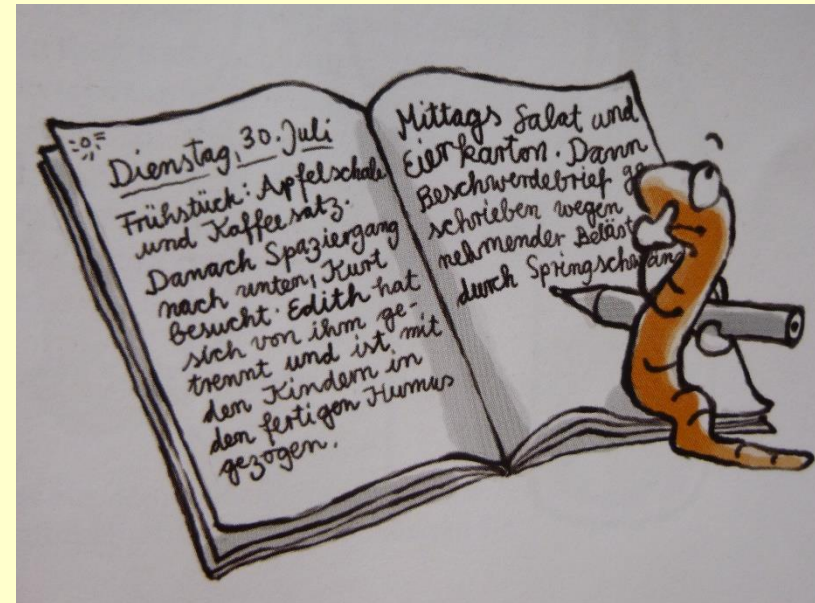 Dienstag, 30. Juli
Frühstück: Apfelschale
und Kaffeesatz.
Danach Spaziergang
nach unten, Kurt
besucht. Edith hat
sich von ihm ge-
trennt und ist mit
den Kindern in
den fertigen Humus
gezogen.
Mittags Salat und
Eierkarton. Dann
Beschwerdebrief ge
schrieben wegen
nehmender
durch